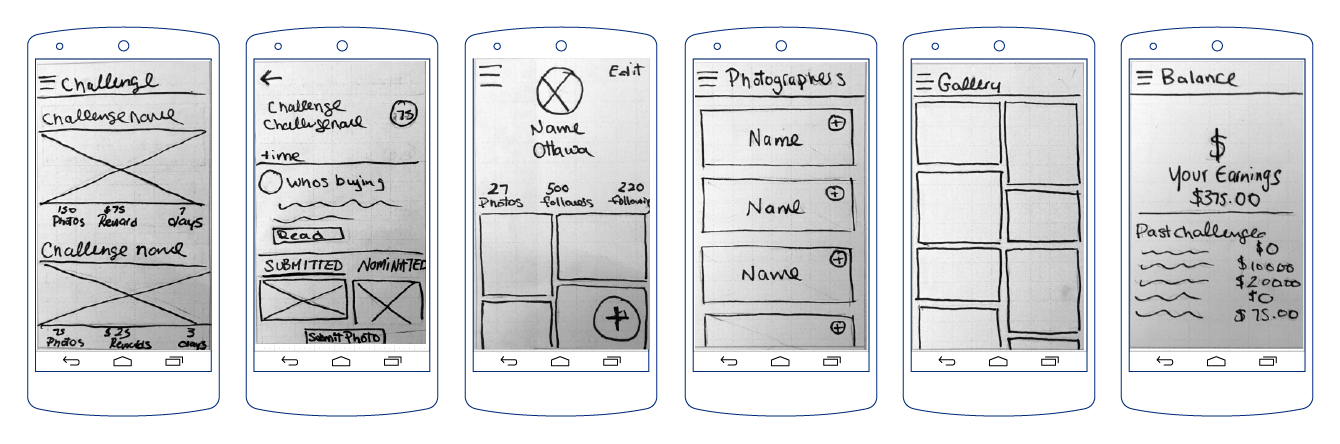 Challenge
Challenge name
150 $75 7
Photos Reward days
Challenge name
75 $25 3
Photos Rewards days
Challenge
Challenge name
75
time
Whos buying
Read
SUBMITTED NOMINATED
Submit Photo
Edit
Name
Ottawa
27 500 220
Photos followers following
+
Photographers
Name +
Name +
Name +
+
Gallery
Balance
$
Your Earnings
$375.00
Past challenges
$0
$100.00
$200.00
$0
$75.00